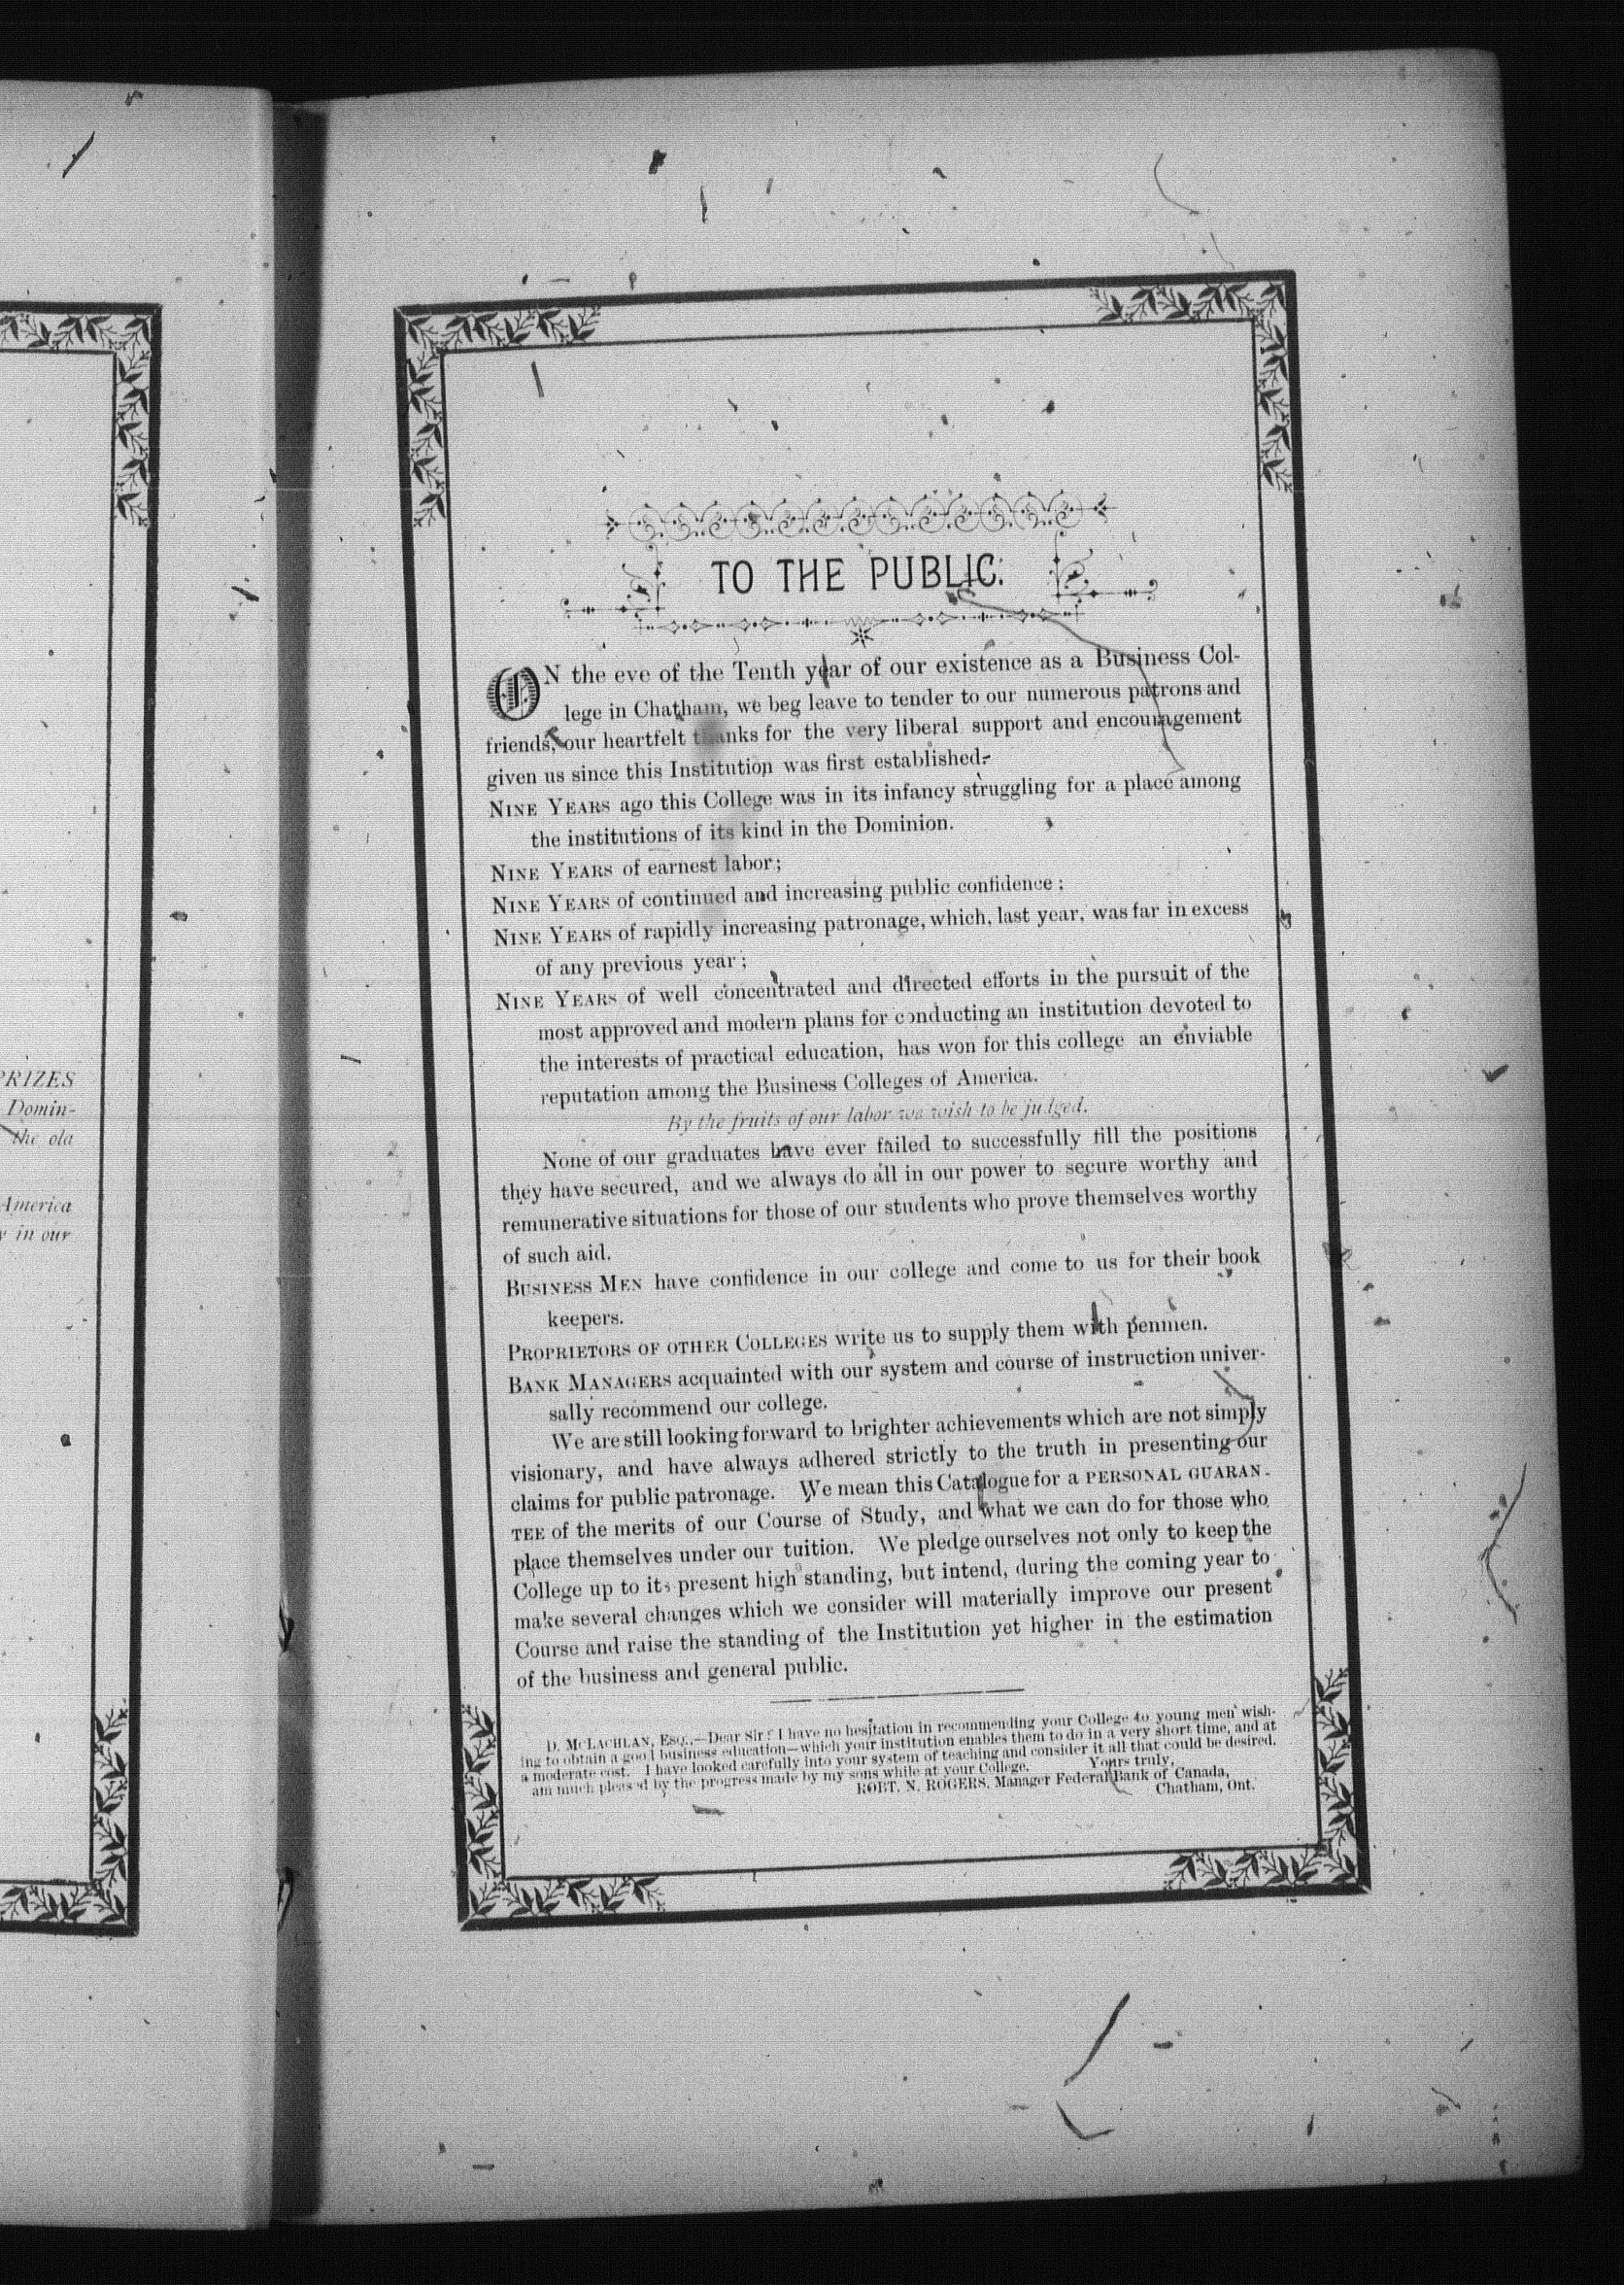 PRIZES
Domin-
the old
America
in our
TO THE PUBLIC.
ON the eve of the Tenth year of our existence as a Business Col-
lege in Chatham, we beg leave to tender to our numerous patrons and
friends, our heartfelt thanks for the very liberal support and encouragement
given us since this Institution was first established.
NINE YEARS ago this College was in its infancy struggling for a place among
the institutions of its kind in the Dominion.
NINE YEARS of earnest labor;
NINE YEARS of continued and increasing public confidence;
NINE YEARS of rapidly increasing patronage, which, last year, was far in excess
of any previous year;
NINE YEARS of well concentrated and directed efforts in the pursuit of the
most approved and modern plans for conducting an institution devoted to
the interests of practical education, has won for this college an enviable
reputation among the Business Colleges of America.
By the fruits of our labor we wish to be judged.
None of our graduates have ever failed to successfully fill the positions
they have secured, and we always do all in our power to secure worthy and
remunerative situations for those of our students who prove themselves worthy
of such aid.
BUSINESS MEN have confidence in our college and come to us for their book
keepers.
PROPRIETORS OF OTHER COLLEGES write us to supply them with penmen.
BANK MANAGERS acquainted with our system and course of instruction univer-
sally recommend our college.
We are still looking forward to brighter achievements which are not simply
visionary, and have always adhered strictly to the truth in presenting our
claims for public patronage. We mean this Catalogue for a PERSONAL GUARAN-
TEE of the merits of our Course of Study, and what we can do for those who
place themselves under our tuition. We pledge ourselves not only to keep the
College up to its present high standing, but intend, during the coming year to
make several changes which we consider will materially improve our present
Course and raise the standing of the Institution yet higher in the estimation
of the business and general public.
D. MCLACHLAN, ESQ.,—Dear Sir: I have no hesitation in recommending your College to young men wish-
ing to obtain a good business education—which your institution enables them to do in a very short time, and at
a moderate cost. I have looked carefully into your system of teaching and consider it all that could be desired.
am much pleased by the progress made by my sons while at your College. Yours truly,
ROBT. N. ROGERS, Manager Federal Bank of Canada,
Chatham, Ont.